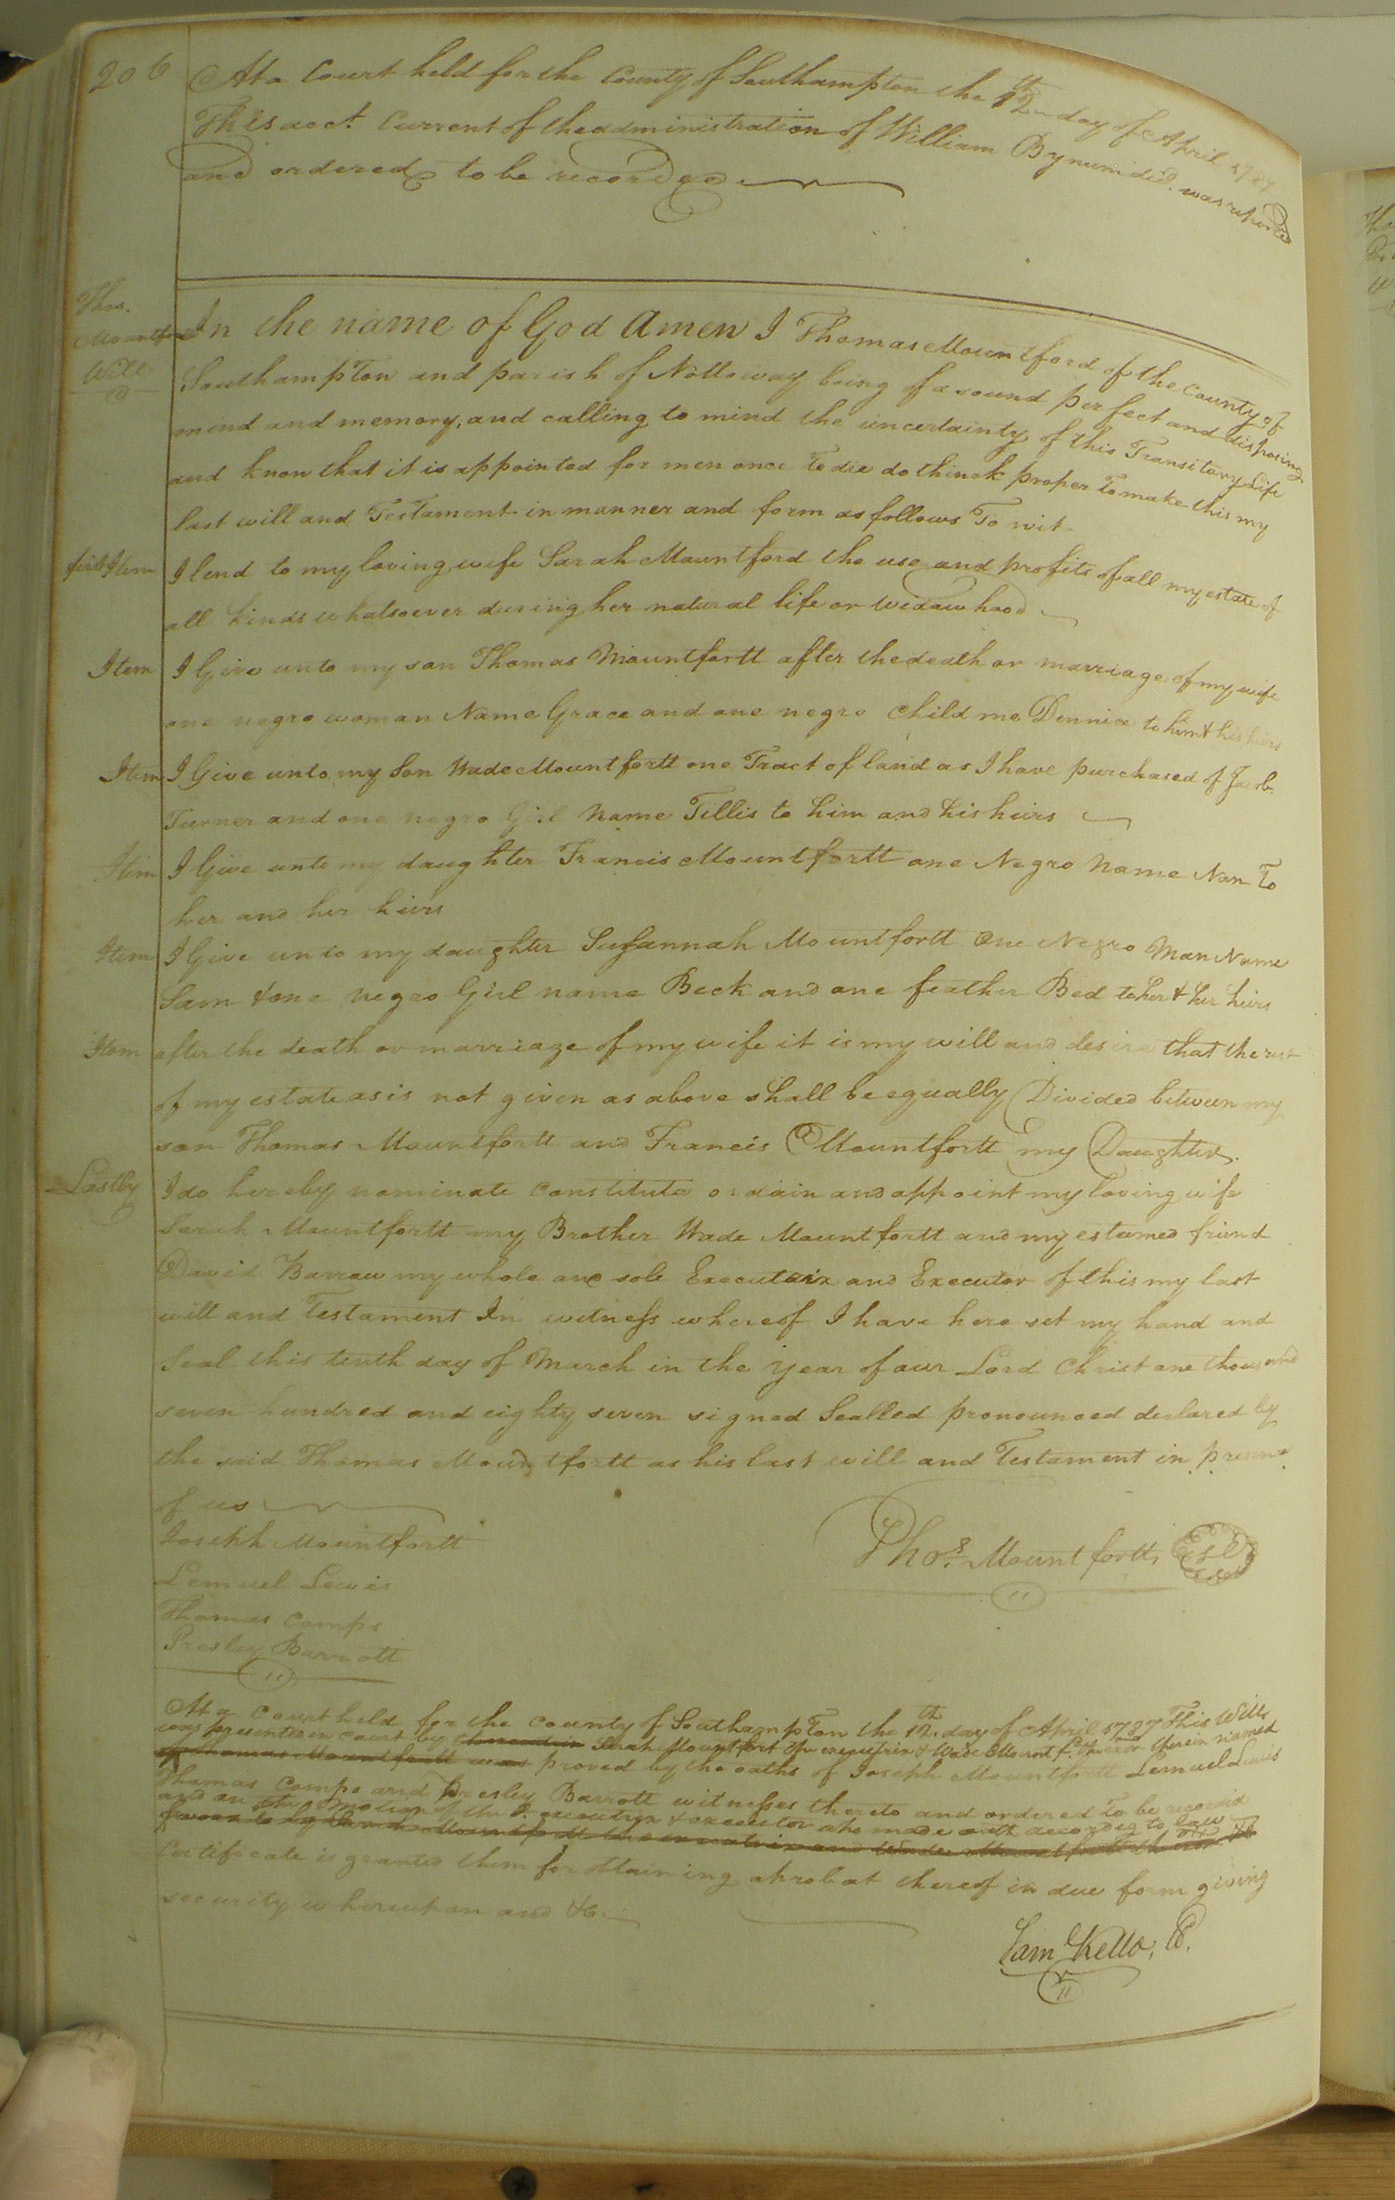 206
At a Court held for the County of Southampton the 12th day of April 1787
This acct. Current of the administration of William Bynum decd. was returned
and ordered to be recorded
Thos.
Mountfort
Will
In the name of God Amen I Thomas Mountford of the County of
Southampton and parish of Nottoway being of a sound perfect and disposing
mind and memory, and calling to mind the uncertainty of this Transitory Life
and know that it is appointed for men once To die do thinck proper To make this my
last will and Testament in manner and form as follows To wit
first Item I lend to my loving wife Sarah Mountford the use and profits of all my estate of
all kinds whatsoever during her natural life or widawhood
Item I Give unto my son Thomas Mountfortt after the death or marriage of my wife
one negro woman Name Grace and one negro child me Dennice to him & his heirs
Item I Give unto my Son Wade Mountfortt one Tract of land as I have purchased of Jacob
Turner and one negro Girl Name Tillis to him and his heirs
Item I Give unto my daughter Francis Mountfortt one Negro Name Nan To
her and her hiers
Item I Give unto my daughter Susannah Mountfortt One Negro Man Name
Sam & one negro Girl name Beck and one feather Bed to her & her heirs
Item after the death or marriage of my wife it is my will and desire that the rest
of my estate as is not given as above shall be equally Divided between my
son Thomas Mountfortt and Francis Mountfortt my Daughter.
Lastly I do hereby nominate constitute ordain and appoint my loving wife
Sarah Mountfortt my Brother Wade Mountfortt and my esteemed friend
David Barrow my whole and sole Executrix and Executor of this my last
will and Testament In witness whereof I have here set my hand and
Seal this tenth day of March in the year of our Lord Christ one thousand
seven hundred and eighty seven signed Sealled pronounced declared by
the said Thomas Mountfortt as his last will and Testament in presence
of us
Joseph Mountfortt
Thos. Mountfortt, LS
Lemuel Lewis
Thomas Camps
Presley Barrott
At a Court held for the County of Southampton the 12th day of April 1787 This Will
was presented in court by Sarah Mountfort the executrix & Wade Mountft. the exor therein named
of Thomas Mountfortt was proved by the oaths of Joseph Mountfortt Lemuel Lewis
Thomas Camps and Presley Barrott witnesses thereto and ordered To be recorded
and on the motion of the sd. executrix & executor who made oath according to law
sworn to by Sarah Mountfortt the executrix and Wade Mountfortt the exor
Certificate is granted them for obtaining a probat thereof in due form giving
security whereupon and &c.
Saml. Kello, C.